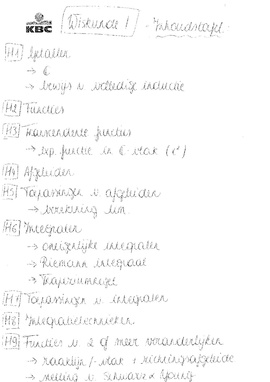 KBC
Wiskunde 1 - Inhoudstafel -
H1 Getallen
→ C
→ bewijs v. volledige inductie
H2 Functies
H3 Transcendente functies
→ exp. functie in C-vlak (e^z)
H4 Afgeleiden
H5 Toepassingen v. afgeleiden
→ berekening lim.
H6 Integralen
→ oneigenlijke integralen
→ Riemann integraal
→ Trapeziumregel
H7 Toepassingen v. integralen
H8 Integratietechnieken
H9 Functies v. 2 of meer veranderlijken
→ raaklijn/-vlak + richtingsafgeleide
→ stelling v. Schwarz & Young